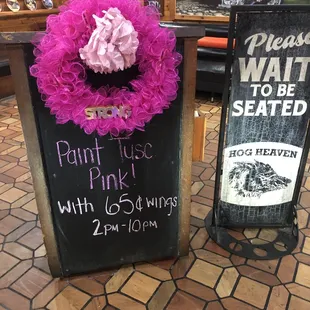 STRONG
Paint Tusc
Pink!
with 65¢ wings
2pm-10pm
Please
WAIT
TO BE
SEATED
HOG HEAVEN